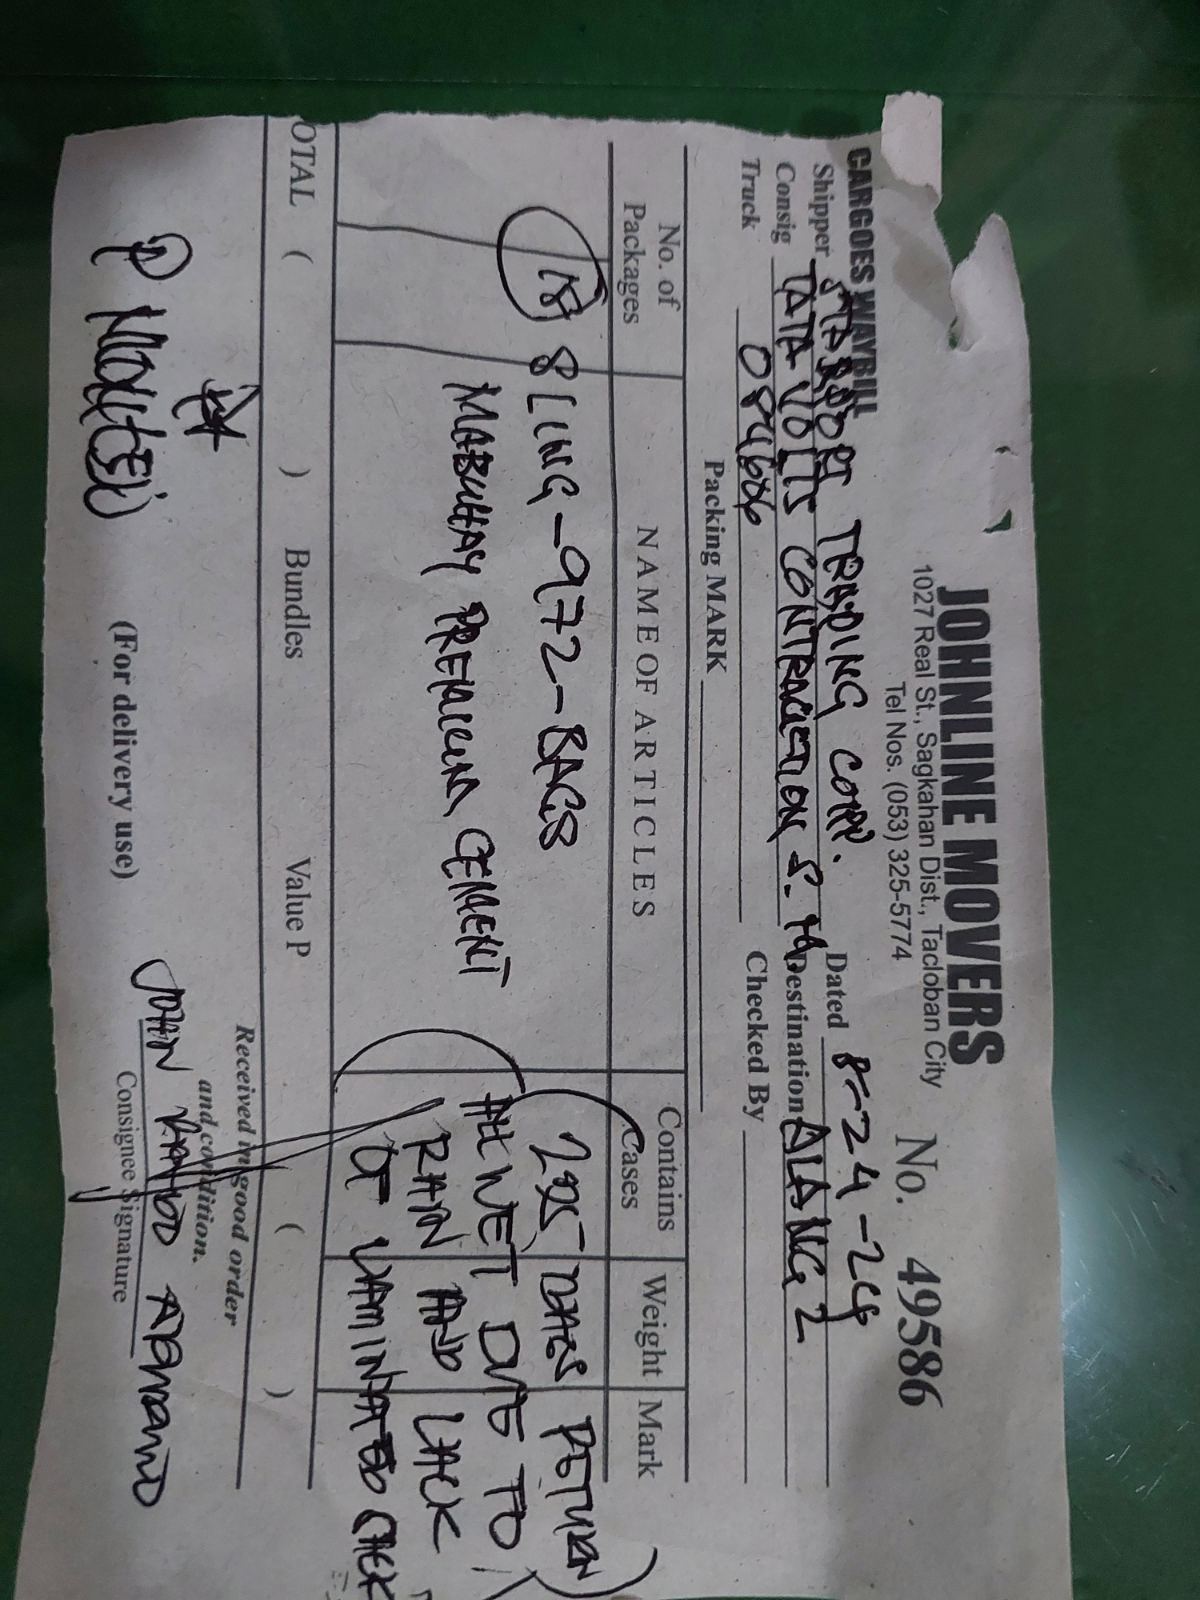 JOHNLINE MOVERS
1027 Real St., Sagkahan Dist., Tacloban City
Tel Nos. (053) 325-5774
No. 49586
CARGOES WAYBILL
Dated 8-24-24
Shipper TRADING CORP.
Consig TATA VOLTS CONTRACTION S.
Destination ALANG2
Truck 084606
Checked By
Packing MARK
No. of Packages
NAME OF ARTICLES
Contains Cases
Weight
Mark
18 SLING-972-BAGS
MABUHAY PREMIUM CEMENT
BAGS RETURN
WET DUE TO
RAIN AND LACK
OF LAMINATED
OTAL ( ) Bundles Value P ( )
Received in good order
and condition.
JOHN
Consignee Signature
(For delivery use)